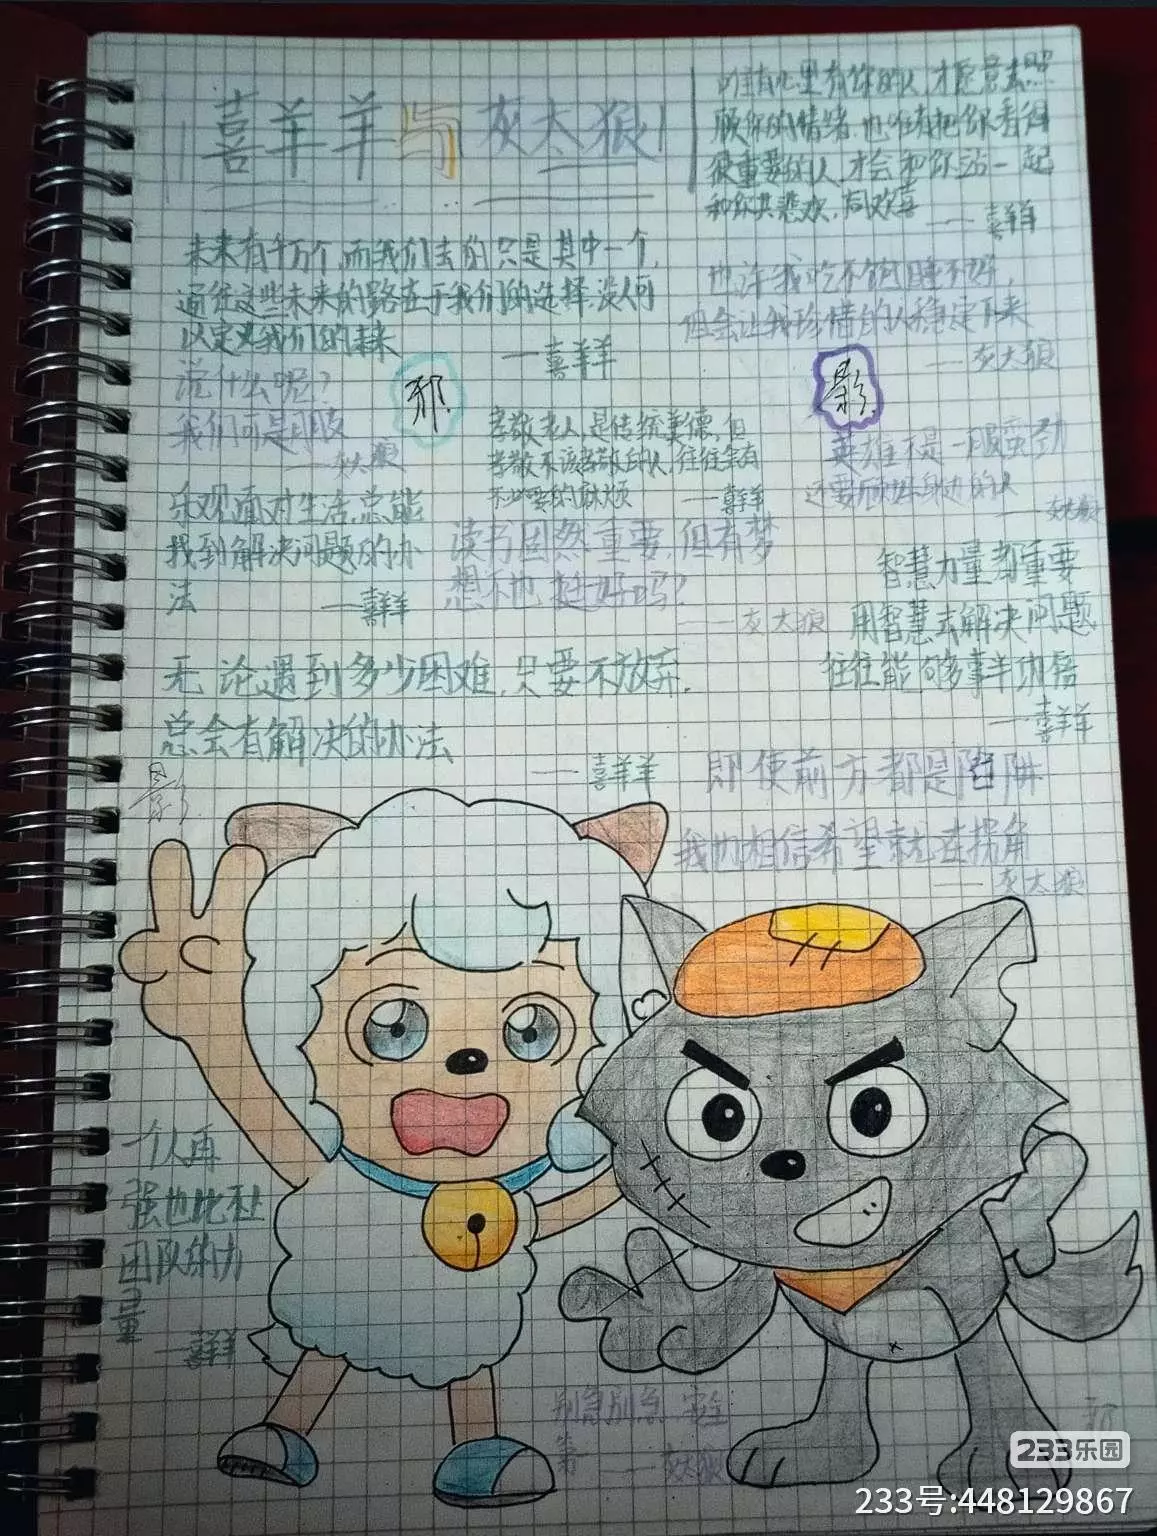 喜羊羊与灰太狼
唯有心里有你的人,才愿意去照
顾你的情绪.也唯有把你看得
很重要的人,才会和你站一起
和你共悲欢,同欢喜
——喜羊羊
未来有千万个,而我们去的只是其中一个,
通往这些未来的路在于我们的选择,没人可
以定义我们的未来
——喜羊羊
也许我吃不饱睡不好,
但会让我珍惜的人稳定下来
——灰太狼
说什么呢?
我们可是
——灰太狼
邪
影
孝敬老人,是传统美德,但
孝敬不该孝敬的人,往往会有
不必要的麻烦
——喜羊羊
英雄不是一股蛮劲
还要顾虑身边的人
——灰太狼
乐观面对生活,总能
找到解决问题的办
法
——喜羊羊
读书固然重要,但有梦
想不也挺好吗?
——灰太狼
智慧力量都重要
用智慧去解决问题
往往能够事半功倍
——喜羊羊
无论遇到多少困难,只要不放弃,
总会有解决的办法
——喜羊羊
即使前方都是陷阱
我也相信希望就在拐角
——灰太狼
影
一个人再
强也比不上
团队的力
量
——喜羊羊
别急别急,安全
第一
——灰太狼
邪
233乐园
233号:448129867